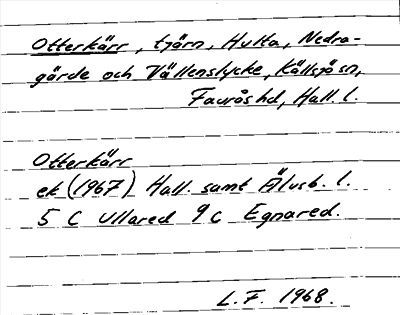 Otterkärr, tjärn, Hulta, Nedra-
gärde och Vällenslycke, Källsjö sn,
Faurås hd, Hall. l.
Otterkärr
ek (1967) Hall. samt Älvsb. l.
5 C Ullared 9 c Egnared.
L.F. 1968.